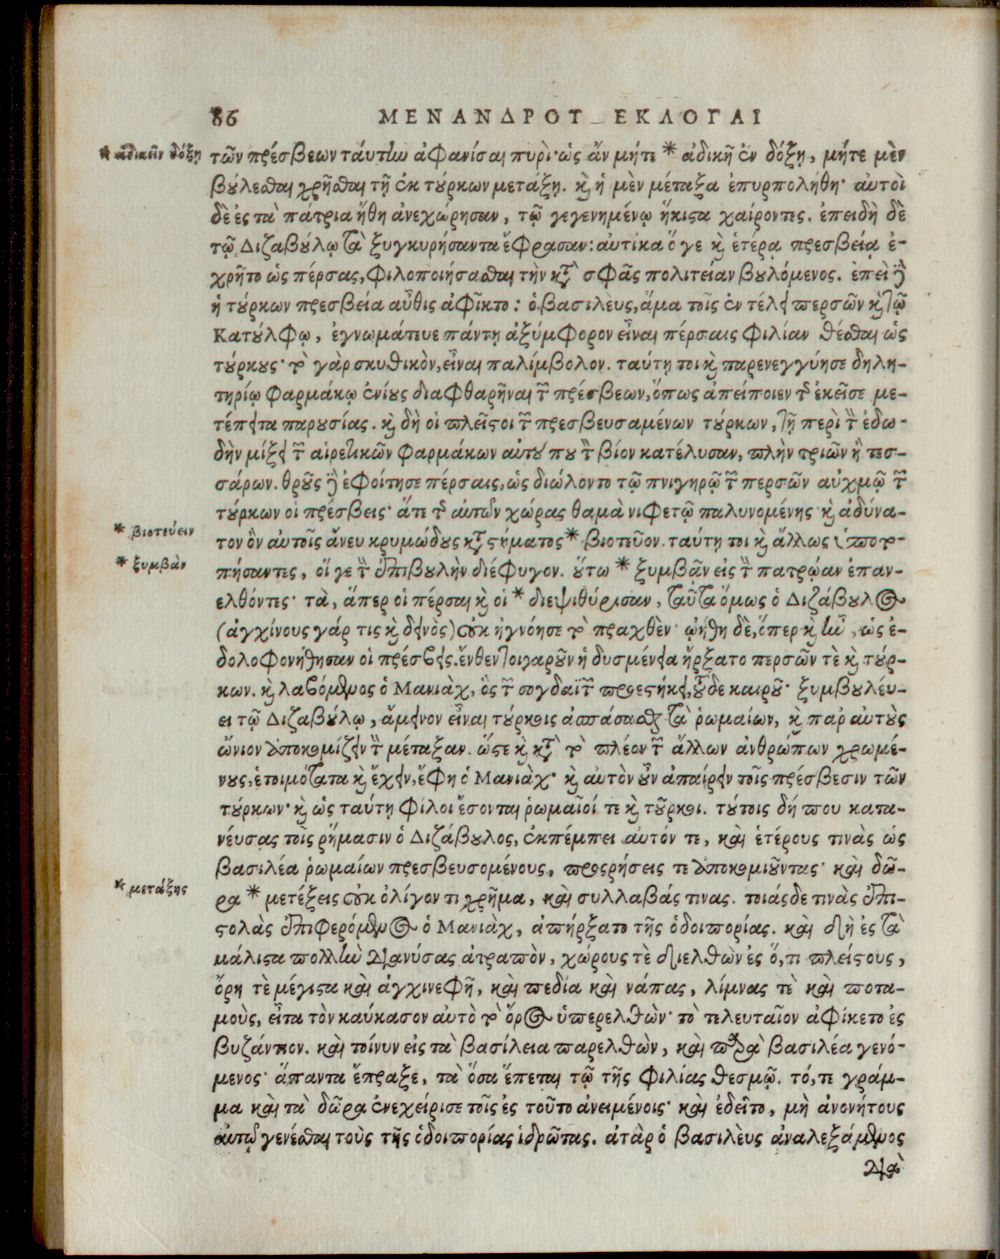 86 ΜΕΝΑΝΔΡΟΥ ΕΚΛΟΓΑΙ
* ἀδικεῖν δόξῃ
τῶν πρέσβεων ταύτην ἀφανίσαι πυρί· ὡς ἄν μήτε * ἀδικῇ ἐν δόξῃ, μήτε μὲν
βούλεσθαι χρῆσθαι τῇ ἐκ τύρκων μετάξῃ. καὶ ἡ μὲν μέταξα ἐπυρπολήθη· αὐτοὶ
δὲ ἐς τὰ πάτρια ἤθη ἀνεχώρησαν, τῷ γεγενημένῳ ἥκιστα χαίροντες. ἐπειδὴ δὲ
τῷ Διζαβούλῳ τὰ ξυγκυρήσαντα ἔφρασαν: αὐτίκα ὅγε καὶ ἑτέρᾳ πρεσβείᾳ ἐ-
χρῆτο ὡς πέρσας, φιλοποιήσασθαι τὴν κατὰ σφᾶς πολιτείαν βουλόμενος. ἐπεὶ δὲ
ἡ τύρκων πρεσβεία αὖθις ἀφῖκτο: ὁ βασιλεὺς, ἅμα τοῖς ἐν τέλει περσῶν καὶ τῷ
Κατούλφῳ, ἐγνωμάτευε πάντη ἀξύμφορον εἶναι πέρσαις φιλίαν θέσθαι ὡς
τύρκους· τὸ γὰρ σκυθικὸν, εἶναι παλίμβολον. ταύτη τοι καὶ παρενεγγύησε δηλη-
τηρίῳ φαρμάκῳ ἐνίους διαφθαρῆναι τῶν πρέσβεων, ὅπως ἀπείποιεν τῆς ἐκεῖσε με-
τέπειτα παρουσίας. καὶ δὴ οἱ πλεῖστοι τῶν πρεσβευσαμένων τύρκων, τῇ περὶ τὴν ἐδω-
δὴν μίξει τῶν αἱρετικῶν φαρμάκων αὐτοῦ που τὸν βίον κατέλυσαν, πλὴν τριῶν ἢ τεσ-
σάρων. θροῦς δὲ ἐφοίτησε πέρσαις, ὡς διώλοντο τῷ πνιγηρῷ τῶν περσῶν αὐχμῷ τῶν
τύρκων οἱ πρέσβεις· ἅτε τῆς αὐτῶν χώρας θαμὰ νιφετῷ παλυνομένης καὶ ἀδύνα-
* βιοτεύειν
τον ὂν αὐτοῖς ἄνευ κρυμώδους καταστήματος * βιοτεῦον. ταύτη τοι καὶ ἄλλως ὑποτο-
* ξυμβὰν
πήσαντες, οἵ γε τὴν ἐπιβουλὴν διέφυγον. οὕτω * ξυμβᾶν εἰς τὴν πατρῴαν ἐπαν-
ελθόντες· τὰ, ἅπερ οἱ πέρσαι καὶ οἱ * διεψιθύρισαν, ταῦτα ὅμως ὁ Διζάβουλος
(ἀγχίνους γάρ τις καὶ δεινὸς) οὐκ ἠγνόησε τὸ πραχθὲν· ᾠήθη δὲ, ὅπερ καὶ ἦν, ὡς ἐ-
δολοφονήθησαν οἱ πρέσβεις. ἔνθεν τοιγαροῦν ἡ δυσμένεια ἤρξατο περσῶν τὲ καὶ τύρ-
κων. καὶ λαβόμενος ὁ Μανιὰχ, ὃς τῶν σογδαϊτῶν προεστήκει, τοῦδε καιροῦ· ξυμβουλεύ-
ει τῷ Διζαβούλῳ, ἄμεινον εἶναι τύρκοις ἀσπάσασθαι τὰ ῥωμαίων, καὶ παρ' αὐτοὺς
ὤνιον ἀποκομίζειν τὴν μέταξαν. ὥστε καὶ κατὰ τὸ πλέον τῶν ἄλλων ἀνθρώπων χρωμέ-
νους, ἑτοιμότατα καὶ ἔχειν, ἔφη ὁ Μανιὰχ· καὶ αὐτὸν οὖν ἀπαίρειν τοῖς πρέσβεσιν τῶν
τύρκων· καὶ ὡς ταύτῃ φίλοι ἔσονται ῥωμαῖοί τε καὶ τοῦρκοι. τούτοις δή που κατα-
νέυσας τοῖς ῥήμασιν ὁ Διζάβουλος, ἐκπέμπει αὐτόν τε, καὶ ἑτέρους τινὰς ὡς
βασιλέα ῥωμαίων πρεσβευσομένους, προσρήσεις τε ἀποκομιοῦντας· καὶ δῶ-
* μετάξης
ρα * μετέξεις οὐκ ὀλίγον τι χρῆμα, καὶ συλλαβάς τινας. τοιάςδε τινὰς ἐπι-
στολὰς ἐπιφερόμενος ὁ Μανιὰχ, ἀπήρξατο τῆς ὁδοιπορίας. καὶ δὴ ἐς τὰ
μάλιστα πολλὴν διανύσας ἀτραπὸν, χώρους τὲ διελθὼν ἐς ὅ,τι πλείστους,
ὄρη τὲ μέγιστα καὶ ἀγχινεφῆ, καὶ πεδία καὶ νάπας, λίμνας τὲ καὶ ποτα-
μοὺς, εἶτα τὸν καύκασον αὐτὸ τὸ ὄρος ὑπερελθὼν· τὸ τελευταῖον ἀφίκετο ἐς
βυζάντιον. καὶ τοίνυν εἰς τὰ βασίλεια παρελθὼν, καὶ παρὰ βασιλέα γενό-
μενος· ἅπαντα ἔπραξε, τὰ ὅσα ἕπεται τῷ τῆς φιλίας θεσμῷ. τό,τι γράμ-
μα καὶ τὰ δῶρα ἐνεχείρισε τοῖς ἐς τοῦτο ἀνειμένοις· καὶ ἐδεῖτο, μὴ ἀνονήτους
αὐτῷ γενέσθαι τοὺς τῆς ὁδοιπορίας ἱδρῶτας. ἀτὰρ ὁ βασιλεὺς ἀναλεξάμενος
διὰ